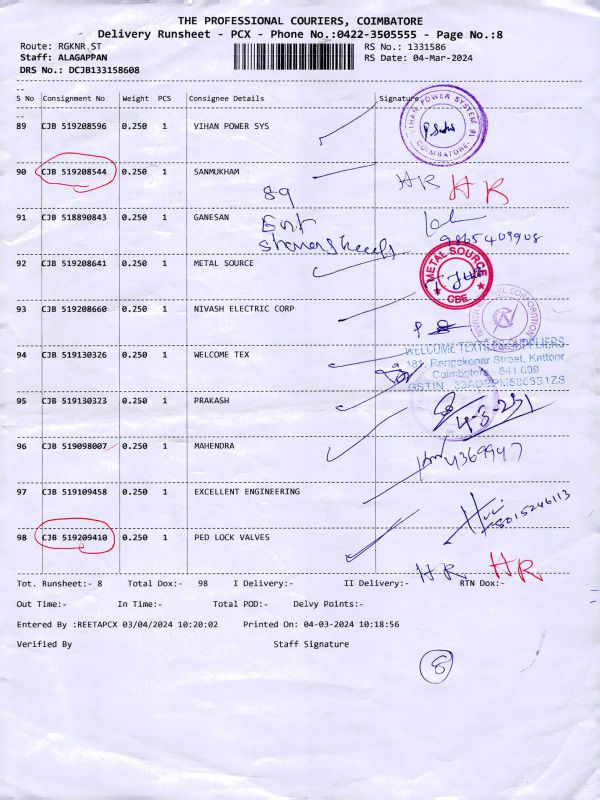 THE PROFESSIONAL COURIERS, COIMBATORE
Delivery Runsheet - PCX - Phone No.:0422-3505555 - Page No.:8
Route: RGKNR.ST RS No.: 1331586
Staff: ALAGAPPAN RS Date: 04-Mar-2024
DRS No.: DCJB133158608
S No Consignment No Weight PCS Consignee Details Signature
89 CJB 519208596 0.250 1 VIHAN POWER SYS
VIHAN POWER SYSTEM
COIMBATORE-
90 CJB 519208544 0.250 1 SANMUKHAM HR HR
89
91 CJB 518890843 0.250 1 GANESAN
9865409908
92 CJB 519208641 0.250 1 METAL SOURCE
METAL SOURCE
CBE
93 CJB 519208660 0.250 1 NIVASH ELECTRIC CORP
94 CJB 519130326 0.250 1 WELCOME TEX
WELCOME TEXTILES SUPPLIERS
181, Rangakonar Street, Kattoor
Coimbatore - 641 009
95 CJB 519130323 0.250 1 PRAKASH
96 CJB 519098007 0.250 1 MAHENDRA
97 CJB 519109458 0.250 1 EXCELLENT ENGINEERING
8015246113
98 CJB 519209410 0.250 1 PED LOCK VALVES
HR HR
Tot. Runsheet:- 8 Total Dox:- 98 I Delivery:- II Delivery:- RTN Dox:-
Out Time:- In Time:- Total POD:- Delvy Points:-
Entered By :REETAPCX 03/04/2024 10:20:02 Printed On: 04-03-2024 10:18:56
Verified By Staff Signature
8